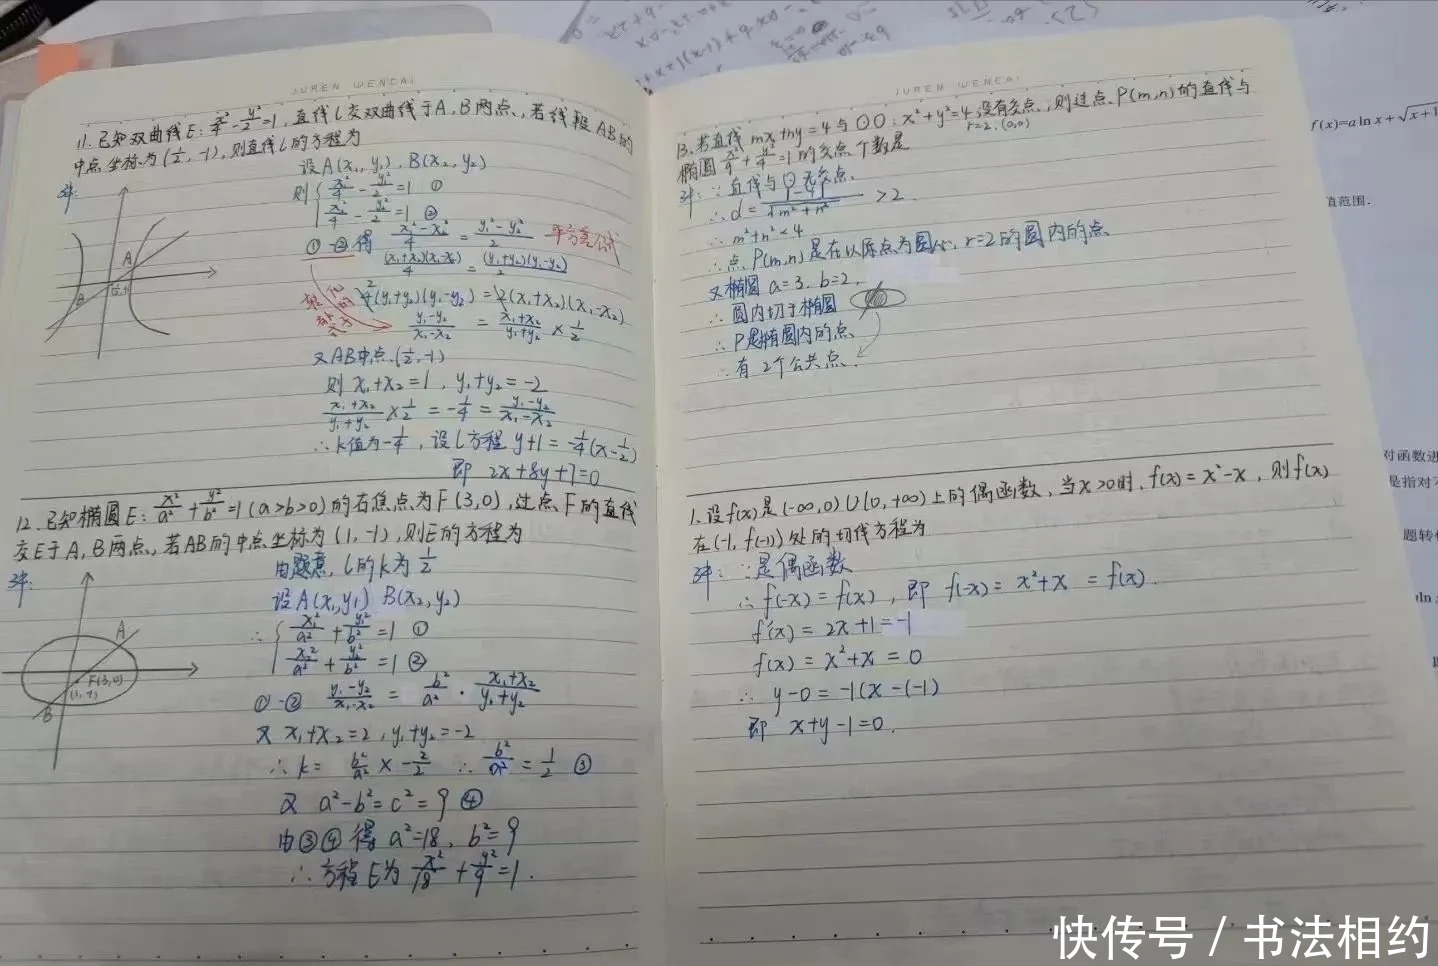 JUREN WENCAI
11.已知双曲线E: x²/4 - y²/2 =1,直线l交双曲线于A,B两点,若线段AB的
中点坐标为(1/2,-1),则直线l的方程为
解:
设A(x₁,y₁),B(x₂,y₂)
则{ x₁²/4 - y₁²/2 =1 ①
x₂²/4 - y₂²/2 =1 ②
①-②得 (x₁²-x₂²)/4 = (y₁²-y₂²)/2 平方差公式
(x₁+x₂)(x₁-x₂)/4 = (y₁+y₂)(y₁-y₂)/2
(y₁+y₂)(y₁-y₂)=2(x₁+x₂)(x₁-x₂)
(y₁-y₂)/(x₁-x₂) = (x₁+x₂)/(y₁+y₂) × 1/2
又AB中点(1/2,-1)
则 x₁+x₂=1, y₁+y₂=-2
(x₁+x₂)/(y₁+y₂) × 1/2 = -1/4 = (y₁-y₂)/(x₁-x₂)
∴k值为-1/4,设l方程 y+1=-1/4(x-1/2)
即 2x+8y+7=0
A
B
12.已知椭圆E: x²/a² + y²/b² =1(a>b>0)的右焦点为F(3,0),过点F的直线
交E于A,B两点,若AB的中点坐标为(1,-1),则E的方程为
解:
由题意,l的k为1/2
设A(x₁,y₁) B(x₂,y₂)
∴{ x₁²/a² + y₁²/b² =1 ①
x₂²/a² + y₂²/b² =1 ②
①-② (y₁-y₂)/(x₁-x₂) = b²/a² · (x₁+x₂)/(y₁+y₂)
又 x₁+x₂=2, y₁+y₂=-2
∴k= b²/a² × -2/2 ∴ b²/a² = 1/2 ③
又 a²-b²=c²=9 ④
由③④得 a²=18, b²=9
∴方程E为 x²/18 + y²/9 =1.
A
F(3,0)
(1,-1)
B
JUREN WENCAI
13.若直线 mx+ny=4与⊙O:x²+y²=4没有交点,则过点P(m,n)的直线与
r=2.(0,0)
椭圆 x²/9 + y²/4 =1的交点个数是
解:∵直线与⊙无交点
∴d= |-4|/√(m²+n²) >2.
∴m²+n²<4
∴点P(m,n)是在以原点为圆心,r=2的圆内的点
又椭圆a=3.b=2,
∴圆内切于椭圆
∴P是椭圆内的点
∴有2个公共点.
1.设f(x)是(-∞,0)∪(0,+∞)上的偶函数,当x>0时,f(x)=x²-x,则f(x)
在(-1,f(-1))处的切线方程为
解:∵是偶函数
∴f(-x)=f(x),即 f(-x)=x²+x =f(x).
f'(x)=2x+1=-1
f(x)=x²+x=0
∴y-0=-1(x-(-1)
即 x+y-1=0.
f(x)=aln x+√x+1
值范围.
对函数进
是指对
题转化
快传号 / 书法相约